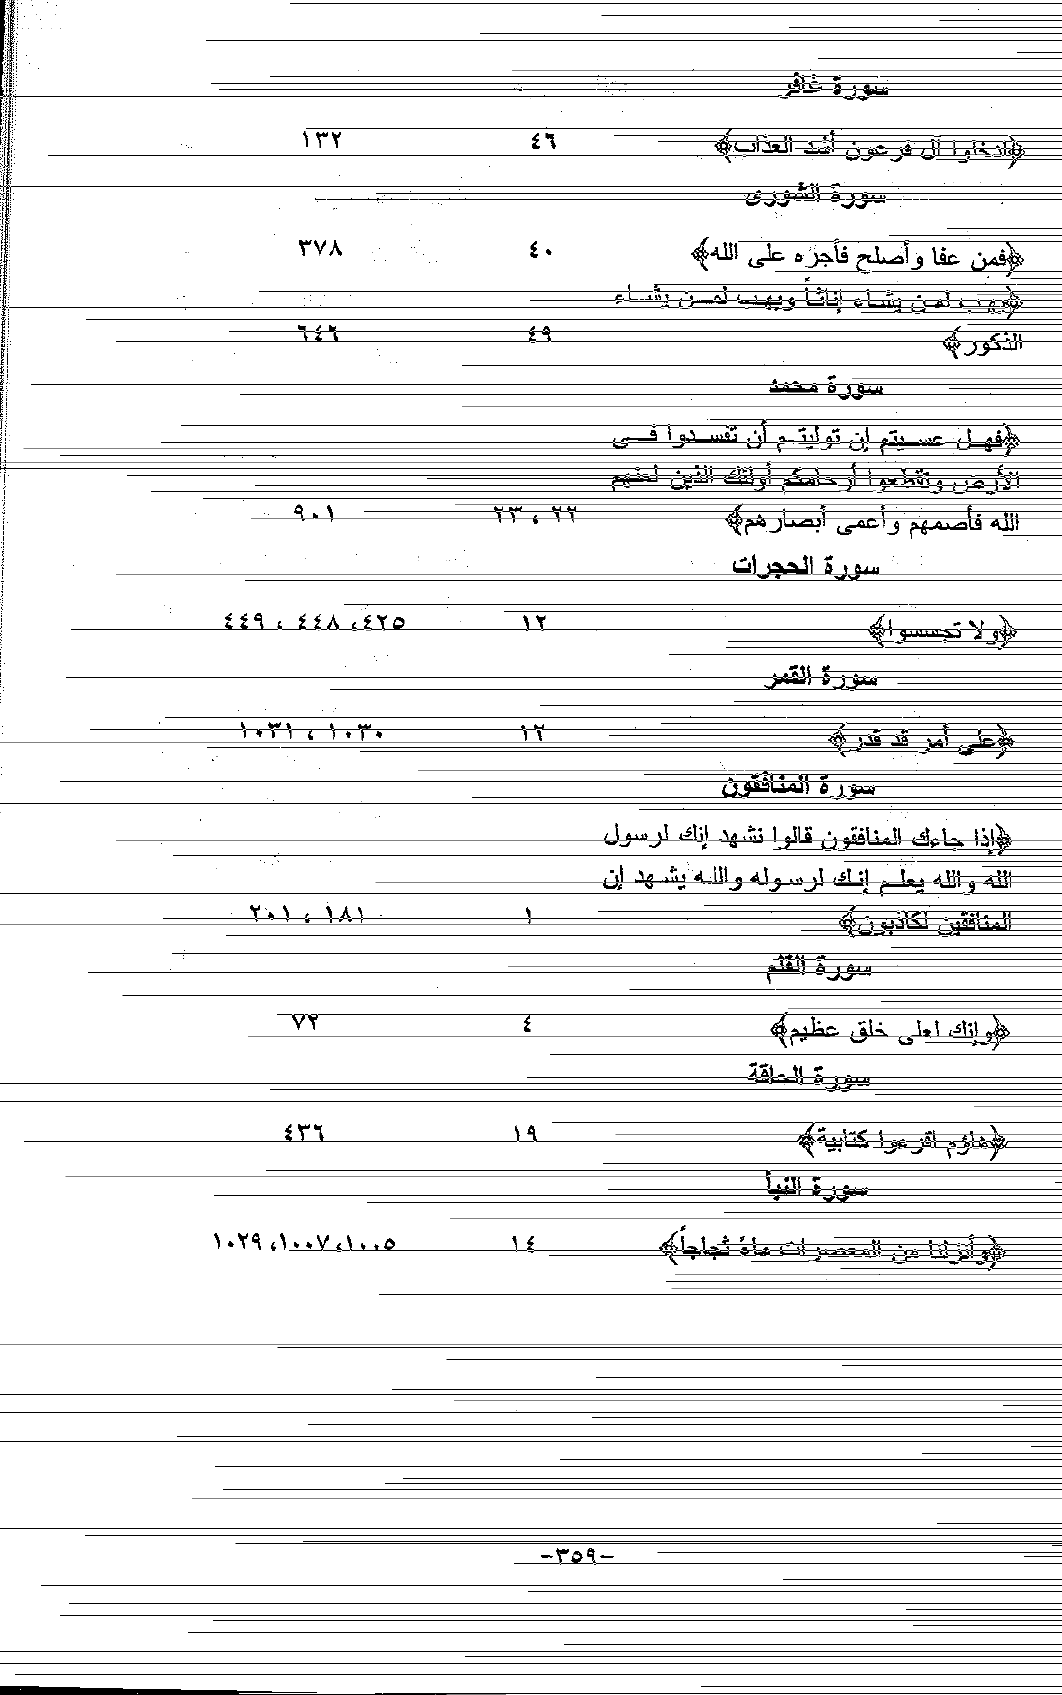 سورة غافر
﴿ادخلوا آل فرعون أشد العذاب﴾ ٤٦ ١٣٢
سورة الشورى
﴿فمن عفا وأصلح فأجره على الله﴾ ٤٠ ٣٧٨
﴿يهب لمن يشاء إناثاً ويهب لمن يشاء
الذكور﴾ ٤٩ ٦٤٦
سورة محمد
﴿فهل عسيتم إن توليتم أن تفسدوا في
الأرض وتقطعوا أرحامكم أولئك الذين لعنهم
الله فأصمهم وأعمى أبصارهم﴾ ٢٢ ، ٢٣ ٩٠١
سورة الحجرات
﴿ولا تجسسوا﴾ ١٢ ٤٢٥، ٤٤٨ ، ٤٤٩
سورة القمر
﴿على أمر قد قدر﴾ ١٢ ١٠٣٠ ، ١٠٣١
سورة المنافقون
﴿إذا جاءك المنافقون قالوا نشهد إنك لرسول
الله والله يعلم إنك لرسوله والله يشهد إن
المنافقين لكاذبون﴾ ١ ١٨١ ، ٢٠١
سورة القلم
﴿وإنك لعلى خلق عظيم﴾ ٤ ٧٢
سورة الحاقة
﴿هاؤم اقرءوا كتابية﴾ ١٩ ٤٣٦
سورة النبأ
﴿وأنزلنا من المعصرات ماء ثجاجاً﴾ ١٤ ١٠٠٥، ١٠٠٧، ١٠٢٩
-٣٥٩-